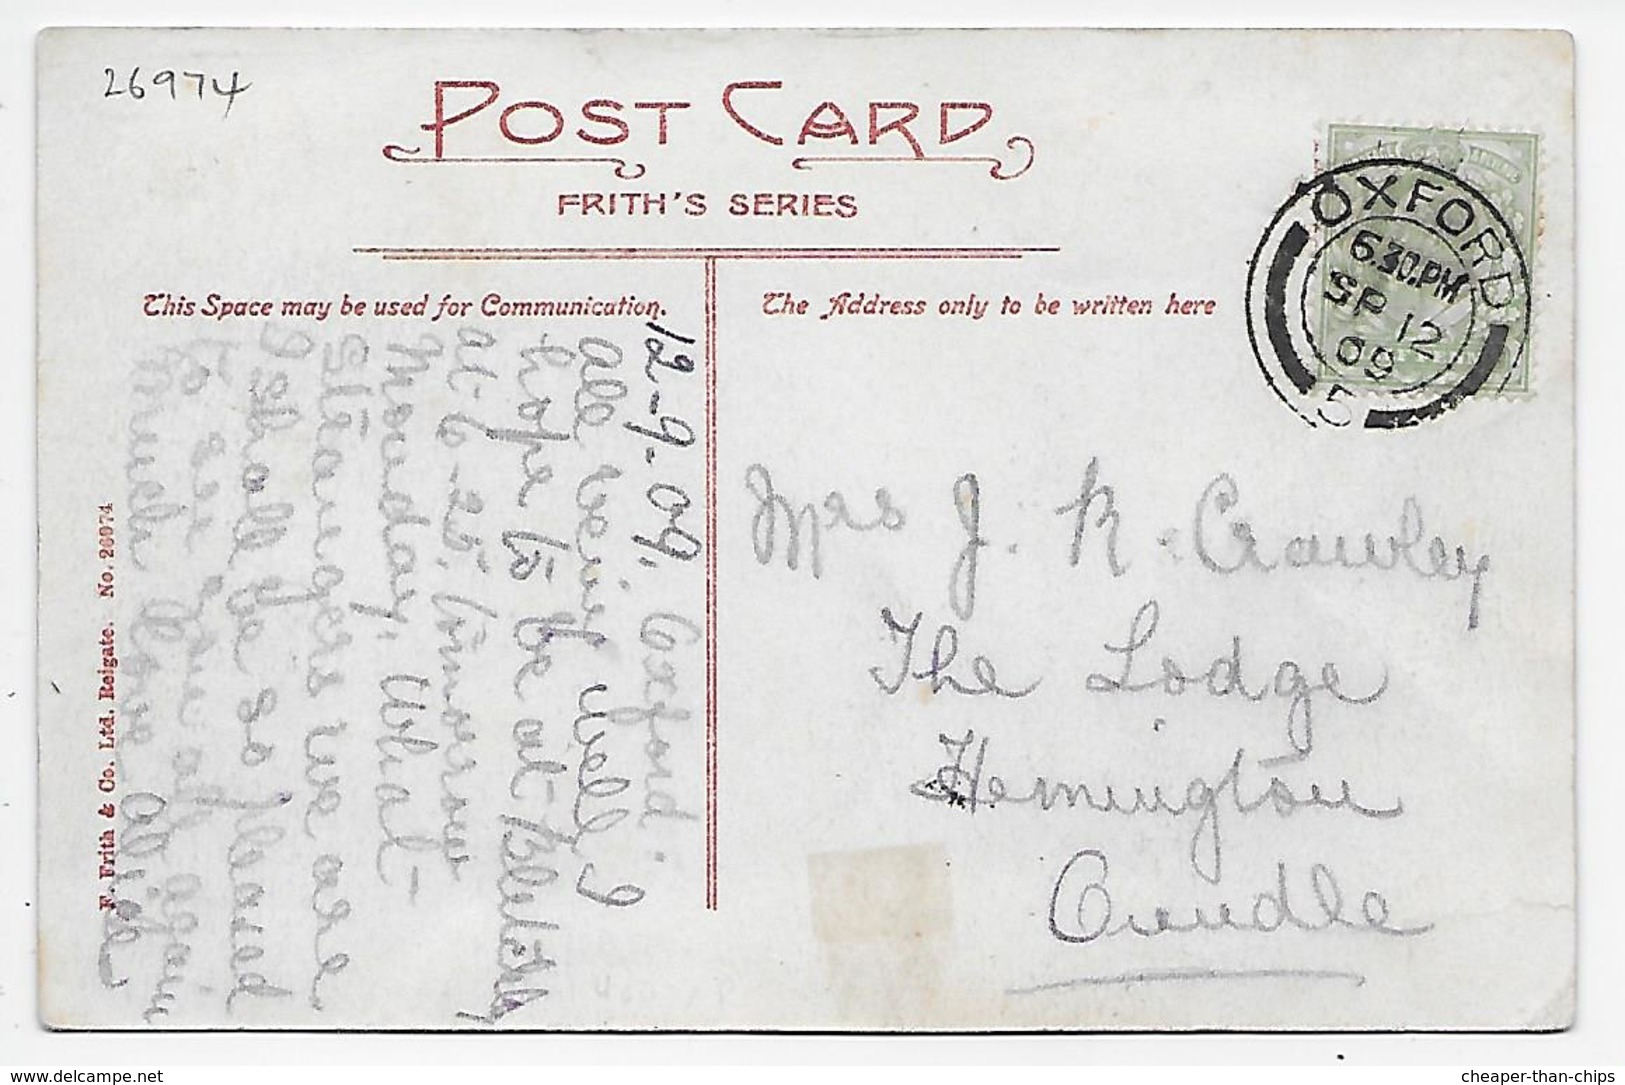 26974
POST CARD
FRITH'S SERIES
This Space may be used for Communication.
The Address only to be written here
OXFORD
6.30.PM
SP 12
09
5
12-9-09. Oxford.
All being well I
hope to be at Bletchley
at 6-25. tomorrow
Monday. What
Strangers we are
I shall be so pleased
to see you all again
Much love all
Mrs J. R. Crawley
The Lodge
Hemington
Oundle
F. Frith & Co. Ltd. Reigate. No. 26974
delcampe.net
cheaper-than-chips